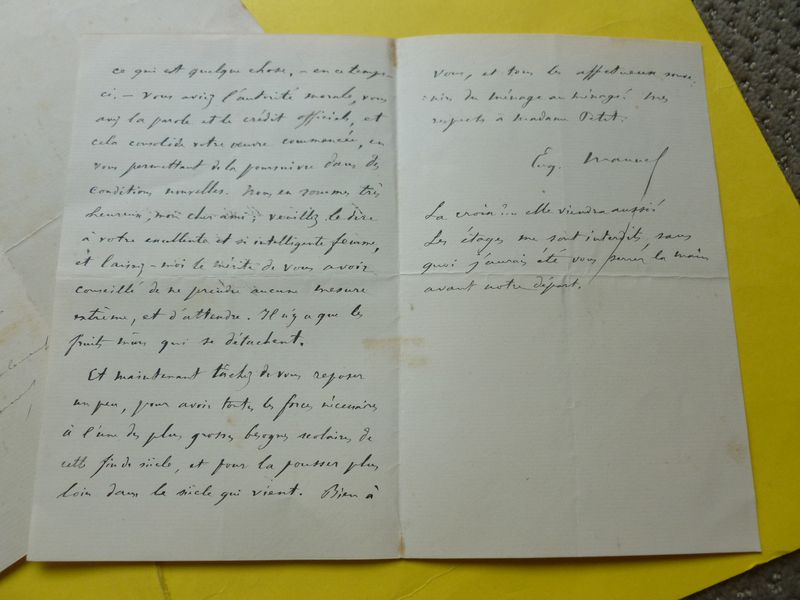 ce qui est quelque chose, – en ce temps-
ci. – Vous aviez l'autorité morale, vous
avez la parole et le crédit officiels, et
cela consolide votre œuvre commencée, en
vous permettant de la poursuivre dans des
conditions nouvelles. Nous en sommes très
heureux, mon cher ami ; veuillez le dire
à votre excellente et si intelligente femme,
et laissez-moi le mérite de vous avoir
conseillé de ne prendre aucune mesure
extrême, et d'attendre. Il n'y a que les
fruits mûrs qui se détachent.
Et maintenant tâchez de vous reposer
un peu, pour avoir toutes les forces nécessaires
à l'une des plus grosses besognes scolaires de
cette fin de siècle, et pour la pousser plus
loin dans le siècle qui vient. Bien à
vous, et tous les affectueux souve-
nirs du ménage au ménage. Mes
respects à Madame Petit.
Eug. Manuel
La croix ? – elle viendra aussi !
Les étages me sont interdits, sans
quoi j'aurais été vous serrer la main
avant notre départ.